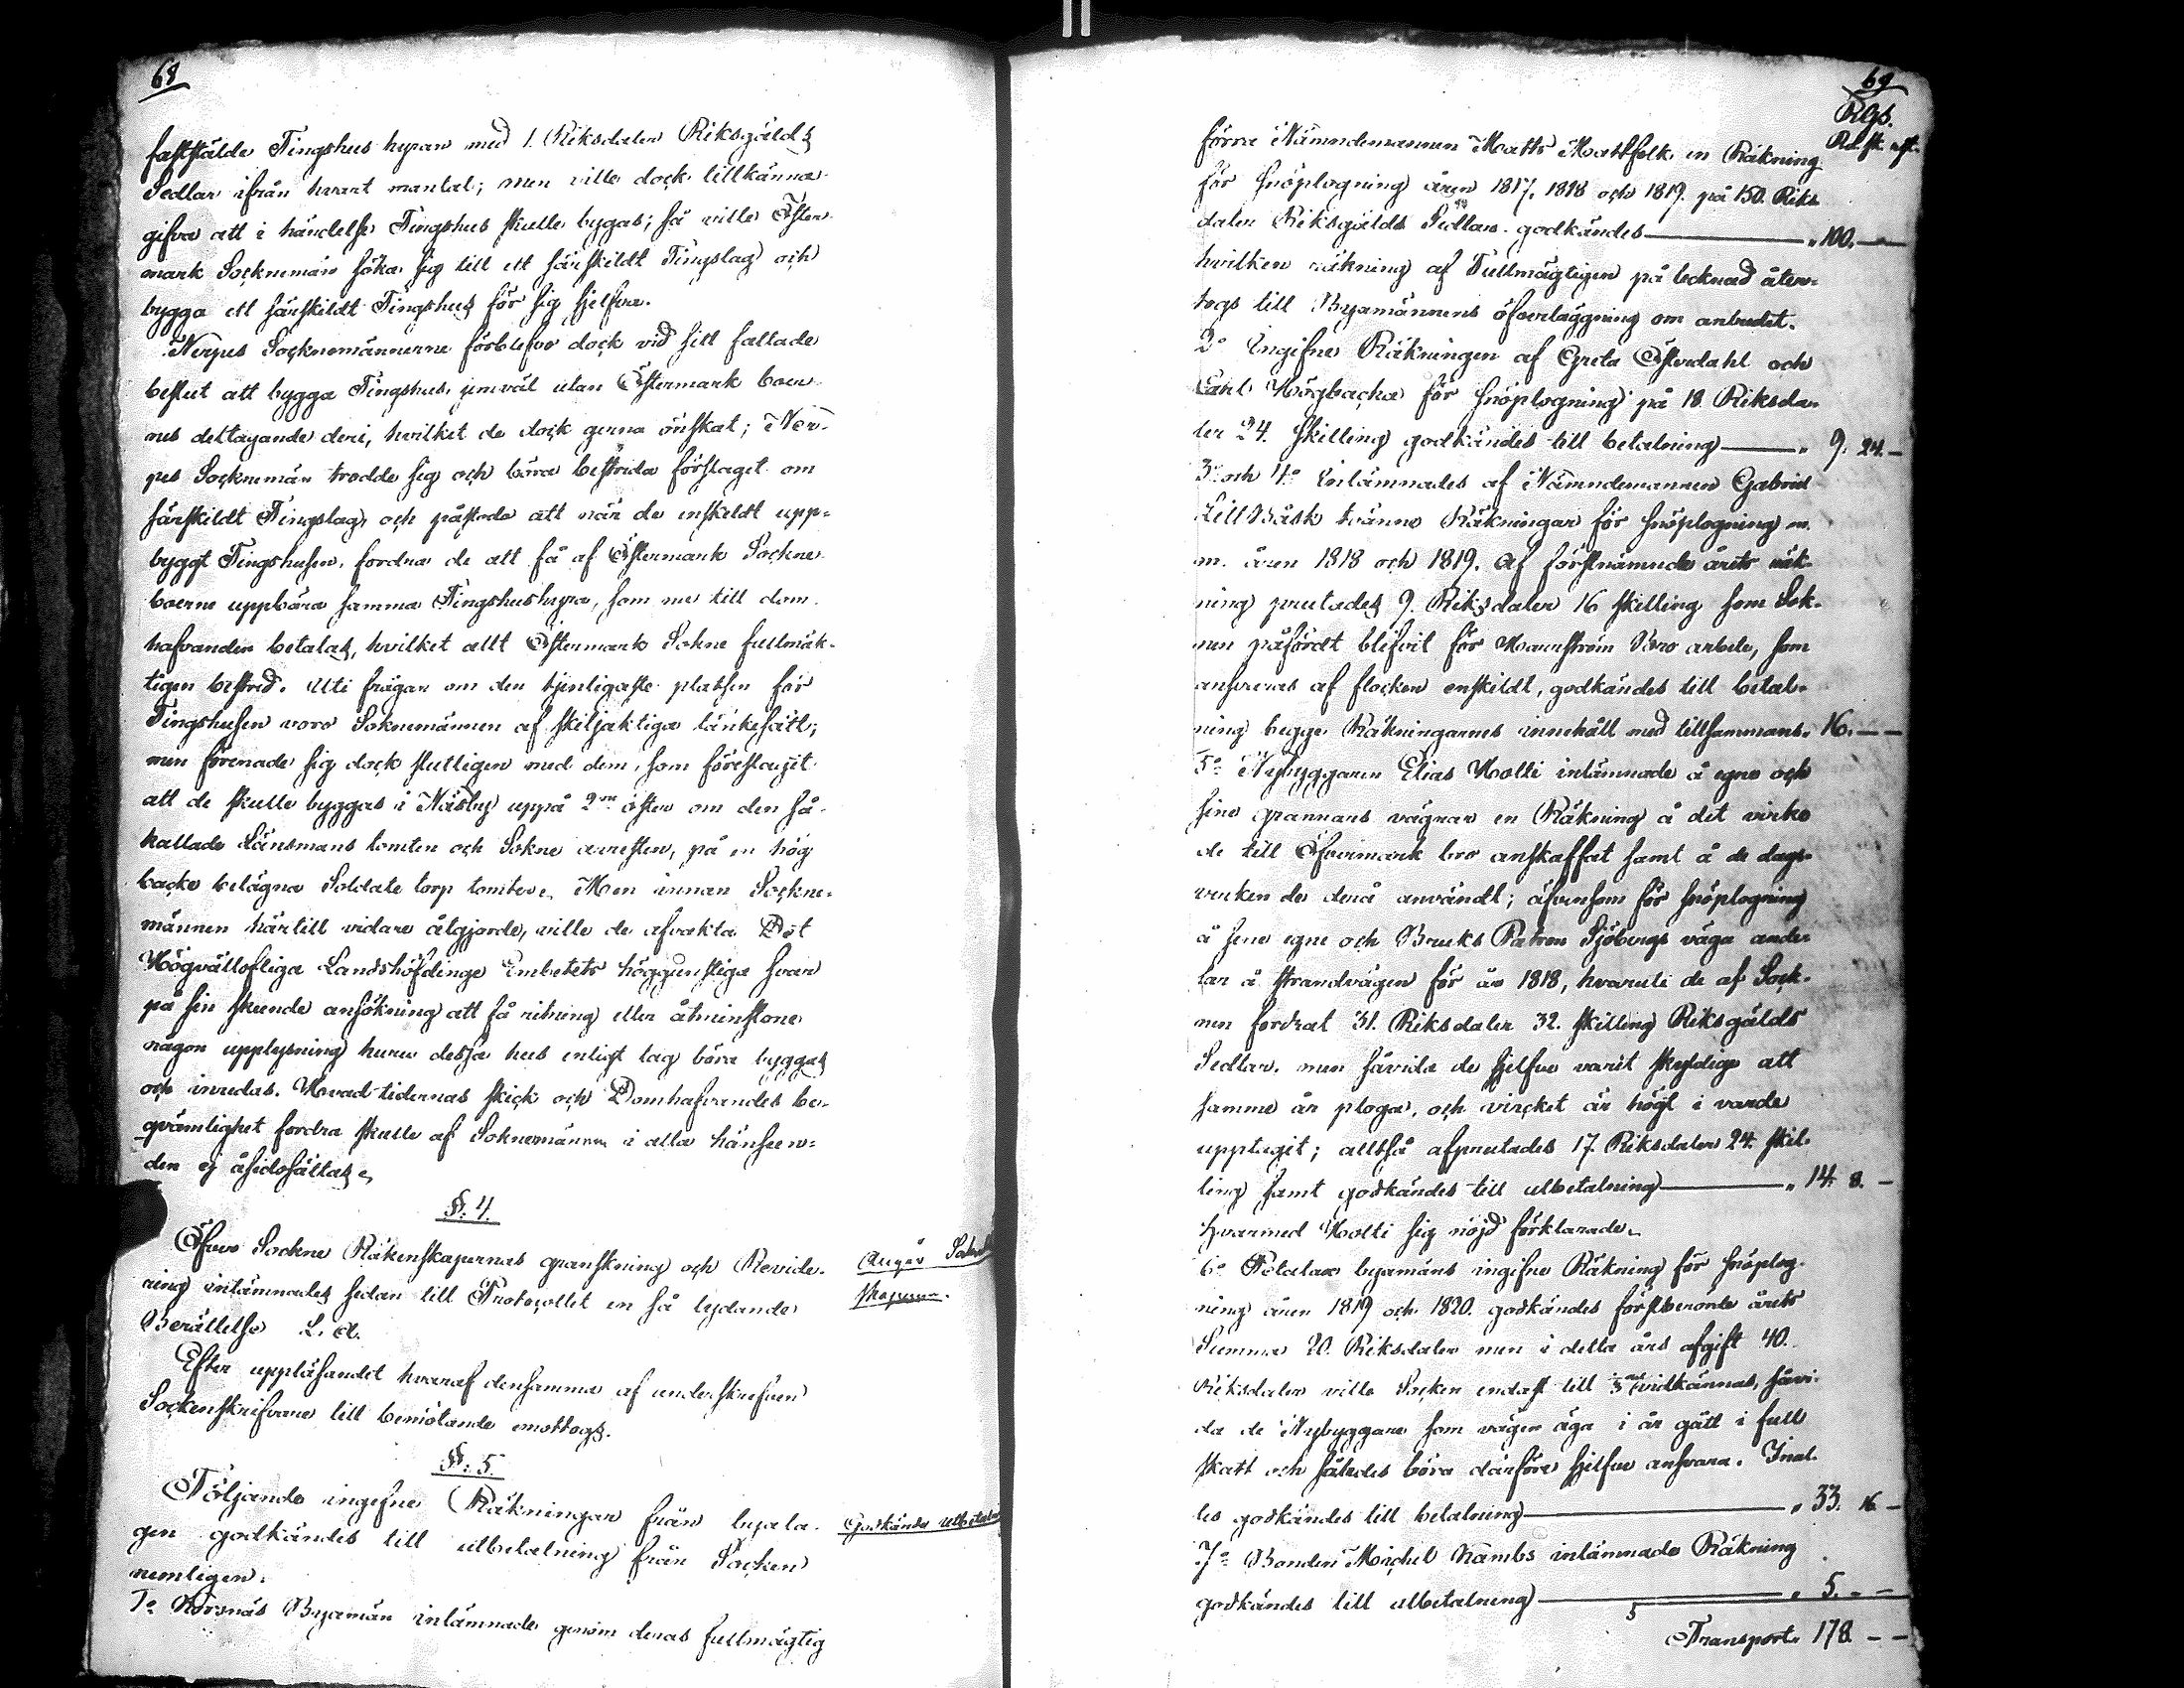 68
faststälde Tingshus hyran med 1. Riksdaler Riksgälds
Sedlar ifrån hvart mantal; men ville dock tillkänna
gifva att i händelse Tingshus skulle bygas; så ville Öster
mark Sockneman söka sig till ett särskildt Tingslag och
bygga ett särskildt Tingshus för sig sjelfva.
Nerpes Socknemännerne förblefvo dock vid sitt fattade
beslut att bygga Tingshus, jemväl utan Östermark boer
nes deltagande deri, hvilket de dock gerna önskat; Ner-
pes Sockneman trodde sig och böra bestrida förslaget om
särskildt Tingslag, och påstodo att när de enskildt upp-
bygt Tingshusen, fordra de att få af Östermark Sockne
boerne uppbära samma Tingshushyra, som nu till dom
hafvanden betalas, hvilket allt Östermark Sokne fullmäk-
tigen bestred. Uti frågan om den tjenligaste platsen för
Tingshusen voro Soknemännen af skiljaktiga tänkesätt;
men förenade sig dock slutligen med dem, som föreslagit
att de skulle byggas i Näsby uppå 2ne öster om den så
kallade Länsmans tomten och Sokne arresten, på en hög
backe belägna Soldate torp tomter. Men innan Sockne-
männen härtill vidare åtgjorde, ville de afvakta Det
Högvällofliga Landshöfdinge Embetets höggunstiga svar
på sin skeende ansökning att få ritning eller åtminstone
någon upplysning huru dessa hus enligt lag böra byggas
och inredas. Hvad tidernas skick och Domhafvandes be-
qvämlighet fordra skulle af Soknemännen i alla hänseen-
den ej åsidosättas.
§. 4.
Öfver Sockne Räkenskapernas granskning och Revide-
ring inlämnades sedan till Protocollet en så lydande
Berättelse L. A.
Angår
Efter uppläsandet hvaraf densamma af underskrefven
Sockenskrifvare till bemötande emottogs.
§. 5.
Följande ingifne Räkningar från byala-
gen godkändes till utbetalning från Socken
nemligen:
Godkända utbetaln
1o Korsnäs Byamän inlämnade genom deras fullmägtig
69
RGs.
Rd. sk. rst.
förra Nämndemannen Matts Mattfolk en Räkning
för snöplogning åren 1817, 1818 och 1819. på 150. Riks
daler Riksgälds Sedlar godkändes — " 100. —
hvilken räkning af Fullmägtigen på lecknad åter-
togs till Byamännens öfverläggning om anbudet.
2o Ingifne Räkningen af Greta Östordahl och
Carl Högbacka för snöplogning på 18 Riksda-
ler 24. skilling godkändes till betalning — " 9. 24. —
3o och 4o Inlämnades af Nämndemannen Gabriel
LillBåsk tvänne Räkningar för snöplogning m.
m. åren 1818 och 1819. Af förstnämnde årets räk-
ning prutades 9. Riksdaler 16 skilling som Sok-
nen påfördt blifvit för Bro arbete, som
ansvaras af flocken enskildt, godkändes till betal-
ning begge Räkningarnes innehåll med tillsammans. 16. — —
5o Nybyggaren Elias Holti inlämnade å egne och
sine grannars vägnar en Räkning å det virke
de till Öfvermark bro anskaffat samt å de dags-
verken de derå användt; äfvensom för snöplogning
å sine egne och Bruks Patron Sjöbergs väga ander
lar å strandvägen för år 1818, hvaruti de af Sock-
nen fordrat 31. Riksdaler 32. skilling Riksgälds
Sedlar, men såvida de sjelfve varit skyldige att
samme år ploga, och vircket är högt i värde
upptagit; alltså afprutades 17. Riksdaler 24. skil-
ling samt godkändes till utbetalning — " 14. 8. —
hvarmed Holti sig nöjd förklarade.
6o byamäns ingifne Räkning för snöplog-
ning åren 1819 och 1820. godkändes förstberörde årets
Summa 20. Riksdaler men i detta års afgift 40.
Riksdaler ville Socken endast till vidkännas, såvi-
da de Nybyggare som vägen äga i år gått i full
skatt och således böra därföre sjelfve ansvara. Inal-
les godkändes till betalning — " 33. 16 —
7o Bonden Michel Nämbs inlämnade Räkning
godkändes till utbetalning — " 5. — —
Transport. 178. — —